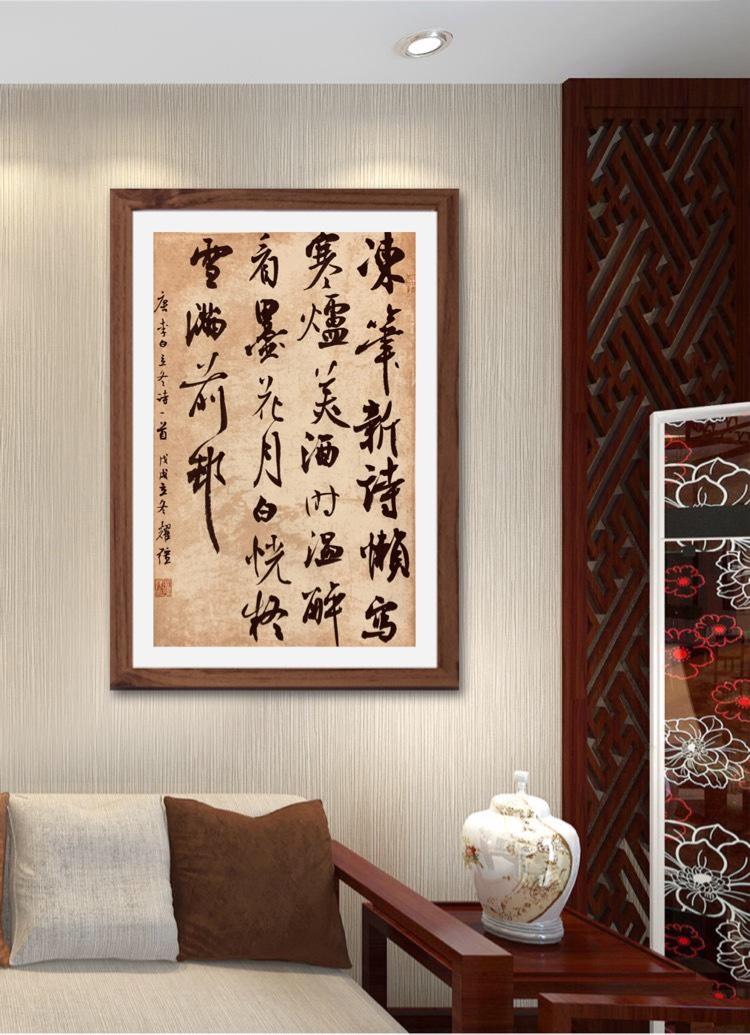 凍筆新詩懶寫
寒爐美酒时温醉
看墨花月白恍疑
雪滿前邨
唐李白立冬诗一首 戊戌立冬耀